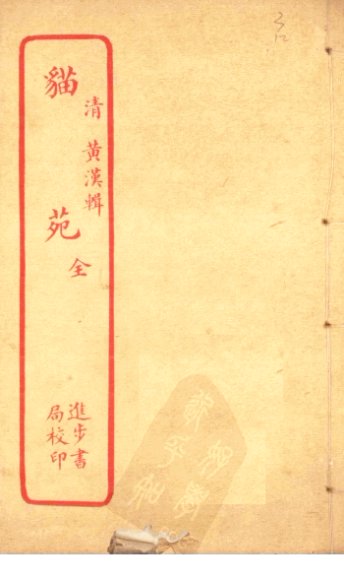 清 黃漢輯
貓苑 全
進步書
局校印